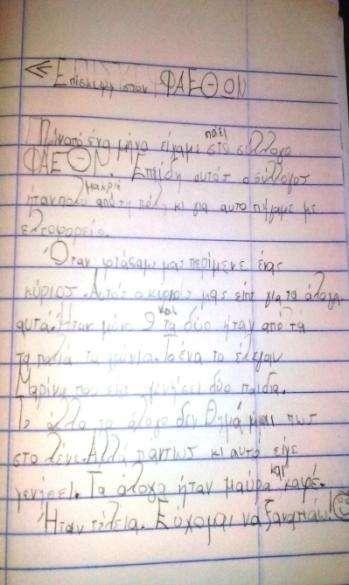 Επίσκεψη στον ΦΑΕΘΟΝ
Πριν από ένα μήνα είχαμε πάει στο σύλλογο
ΦΑΕΘΟΝ. Επιδή αυτός ο σύλλογος
ήταν πολύ μακριά από τη πόλη κι για αυτό πήγαμε με
λεοφορείο.
Όταν φτάσαμε μας περίμενε ένας
κύριος. Αυτός ο κύριος μας είπε για τα άλογα
αυτά. Ήταν μόνο 9 και τα δύο ήταν από τα
τα παλιά τα χρόνια. Το ένα το έλεγαν
Μαρίνα που είχε γενήσει δύο παιδιά.
Το άλλο το άλογο δεν θυμάμαι πως
το λένε. Αλλά πάντως κι αυτό είχε
γενήσει. Τα άλογα ήταν μαύρα και καφέ.
Ήταν τέλεια. Εύχομαι να ξαναπάω!